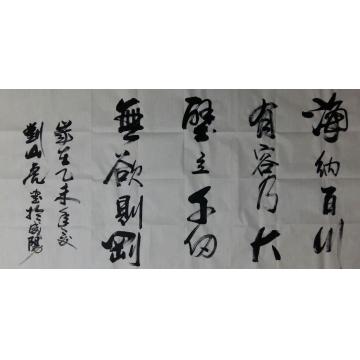 海纳百川
有容乃大
壁立千仞
無欲則剛
歲在乙未年夏
劉山虎書於咸陽